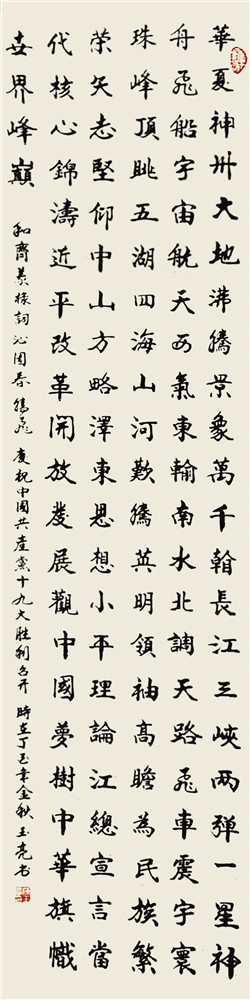 華夏神州大地沸騰景象萬千翰長江三峽两彈一星神
舟飛船宇宙航天西氣東輸南水北調天路飛車震宇寰
珠峰頂眺五湖四海山河歎騰英明領袖高瞻為民族繁
榮矢志堅仰中山方略澤東思想小平理論江總宣言當
代核心錦濤近平改革開放發展觀中國夢樹中華旗幟
世界峰巔
和齊美樣詞沁園春騰飛慶祝中國共產黨十九大勝利召开時在丁酉年金秋玉亮书